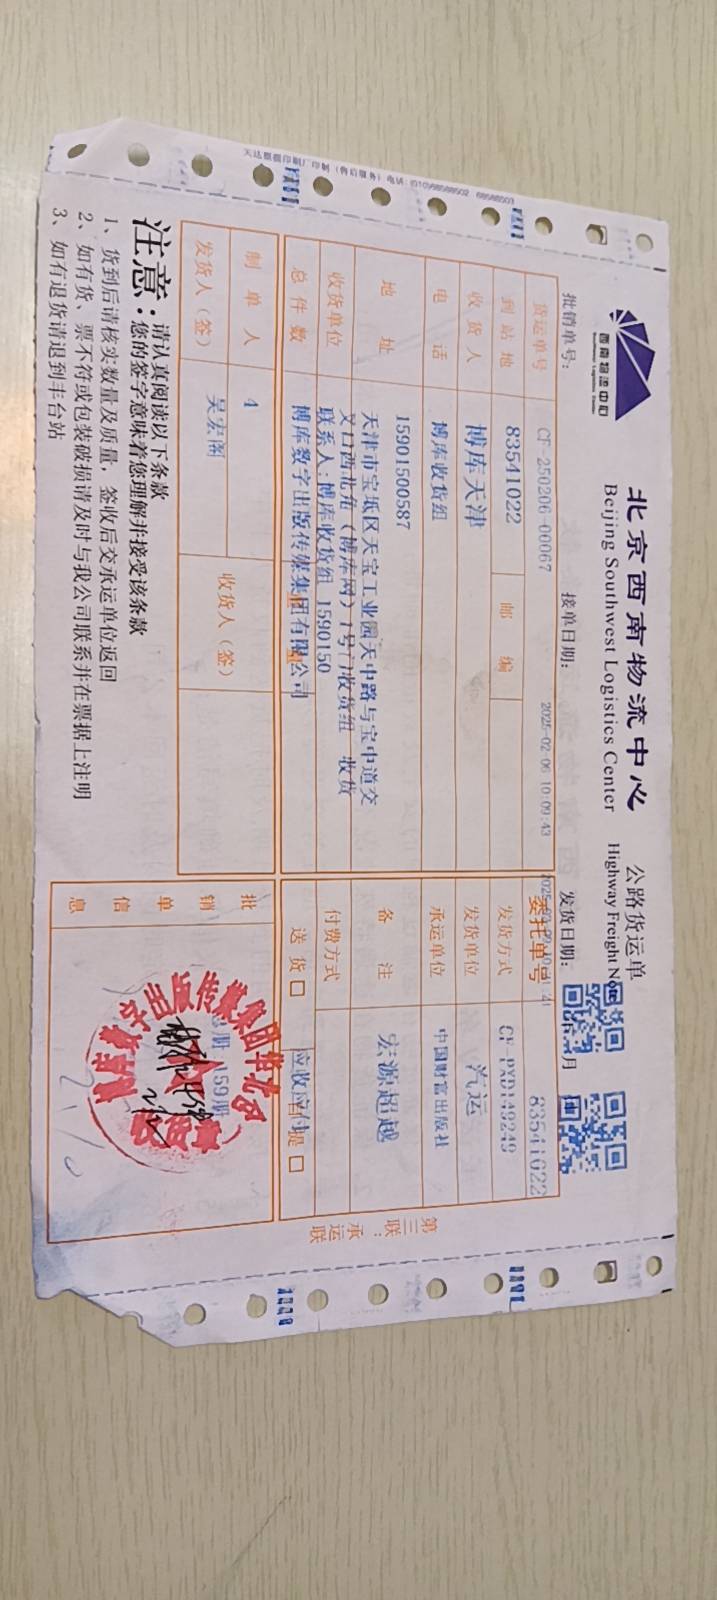 天达票据印刷厂印制（售后服务）电话：(010)68588502 68588503
西南物流中心
Southwest Logistics Center
北京西南物流中心
Beijing Southwest Logistics Center
公路货运单
Highway Freight Note
批销单号：
接单日期：
2025-02-06 10:09:43
发货日期：
月
货运单号 CF-250206-00067
委托单号 83541022
到站地 83541022 邮编
发货方式 CF-PXD149249
收货人 博库天津
发货单位 汽运
电话 博库收货组
承运单位 中国财富出版社
15901500587
地址 天津市宝坻区天宝工业园天中路与宝中道交
叉口西北角（博库网）1号门收货组 收货
备注 宏源超越
收货单位 联系人：博库收货组 1590150
付费方式
总件数 博库数字出版传媒集团有限公司
送货□ 应收应付提□
制单人 4
收货人（签）
发货人（签） 吴宏阁
批销单信息
159期
第三联：承运联
注意：请认真阅读以下条款
您的签字意味着您理解并接受该条款
1、货到后请核实数量及质量，签收后交承运单位返回
2、如有货、票不符或包装破损请及时与我公司联系并在票据上注明
3、如有退货请退到丰台站